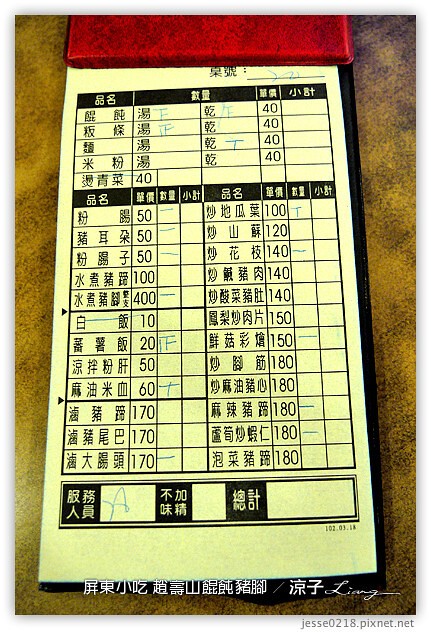 桌號：
品名 數量 單價 小計
餛飩 湯 正 乾 40
粄條 湯 正 乾 40
麵 湯 乾 40
米粉 湯 乾 40
燙青菜 40
品名 單價 數量 小計 品名 單價 數量 小計
粉腸 50 一 炒地瓜葉 100
豬耳朵 50 一 炒山蘇 120
粉腸子 50 一 炒花枝 140 一
水煮豬蹄 100 炒鹹豬肉 140
水煮豬腳 400 一 炒酸菜豬肚 140
白飯 10 鳳梨炒肉片 150
蕃薯飯 20 正 鮮菇彩燴 150 一
涼拌粉肝 50 炒腳筋 180
麻油米血 60 炒麻油豬心 180
滷豬蹄 170 麻辣豬蹄 180 一
滷豬尾巴 170 蘆筍炒蝦仁 180 一
滷大腸頭 170 一 泡菜豬蹄 180
服務人員 A 不加味精 總計
102.03.18
屏東小吃 趙壽山餛飩豬腳 ／ 涼子 Liang
jesse0218.pixnet.net